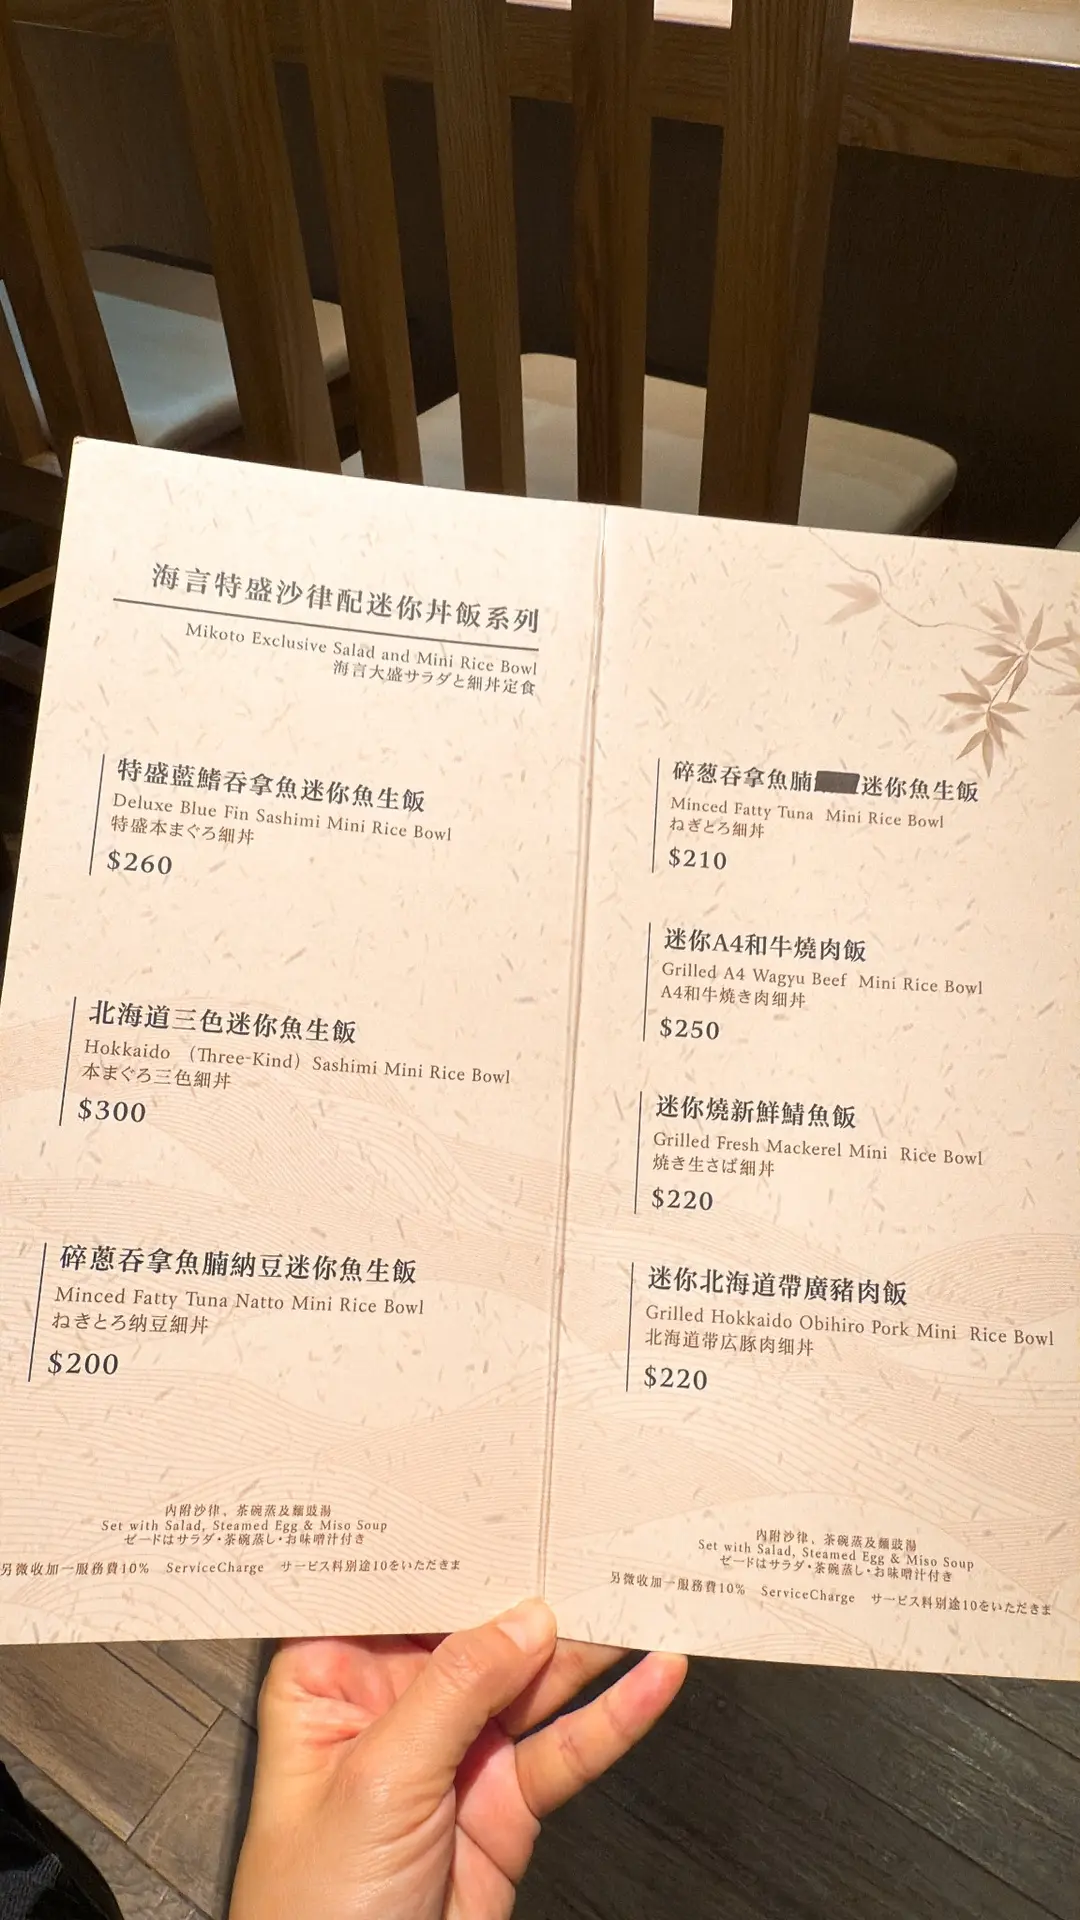 海言特盛沙律配迷你丼飯系列
Mikoto Exclusive Salad and Mini Rice Bowl
海言大盛サラダと細丼定食
特盛藍鰭吞拿魚迷你魚生飯
Deluxe Blue Fin Sashimi Mini Rice Bowl
特盛本まぐろ細丼
$260
北海道三色迷你魚生飯
Hokkaido （Three-Kind）Sashimi Mini Rice Bowl
本まぐろ三色細丼
$300
碎蔥吞拿魚腩納豆迷你魚生飯
Minced Fatty Tuna Natto Mini Rice Bowl
ねきとろ纳豆細丼
$200
內附沙律、茶碗蒸及麵豉湯
Set with Salad, Steamed Egg & Miso Soup
ゼードはサラダ・茶碗蒸し・お味噌汁付き
另微收加一服務費10% ServiceCharge サービス料別途10をいただきま
碎葱吞拿魚腩迷你魚生飯
Minced Fatty Tuna Mini Rice Bowl
ねぎとろ細丼
$210
迷你A4和牛燒肉飯
Grilled A4 Wagyu Beef Mini Rice Bowl
A4和牛焼き肉细丼
$250
迷你燒新鮮鯖魚飯
Grilled Fresh Mackerel Mini Rice Bowl
焼き生さば細丼
$220
迷你北海道帶廣豬肉飯
Grilled Hokkaido Obihiro Pork Mini Rice Bowl
北海道帯広豚肉细丼
$220
內附沙律、茶碗蒸及麵豉湯
Set with Salad, Steamed Egg & Miso Soup
ゼードはサラダ・茶碗蒸し・お味噌汁付き
另微收加一服務費10% ServiceCharge サービス料别途10をいただきま